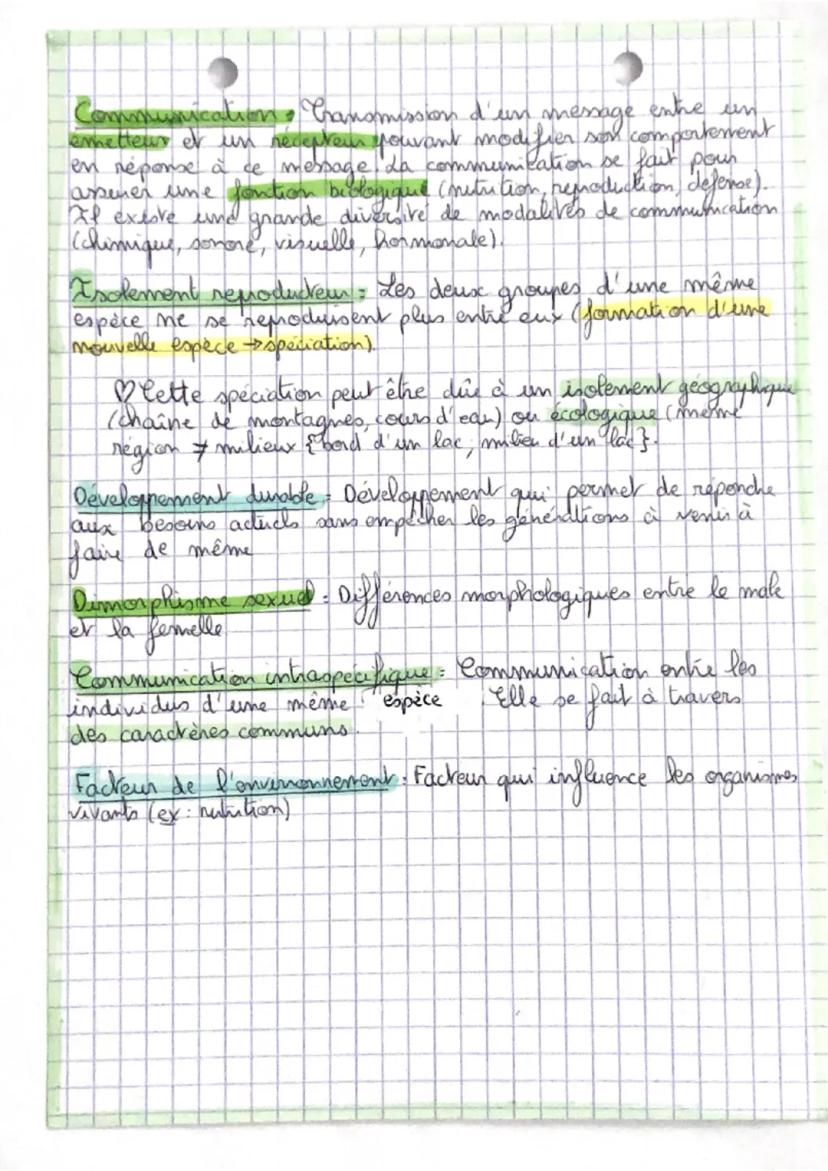 Communication : Transmission d'un message entre un
émetteur et un récepteur pouvant modifier son comportement
en réponse à ce message. La communication se fait pour
assurer une fonction biologique (nutrition, reproduction, défense).
Il existe une grande diversité de modalités de communication
(chimique, sonore, visuelle, hormonale).
Isolement reproducteur : Les deux groupes d'une même
espèce ne se reproduisent plus entre eux (formation d'une
nouvelle espèce → spéciation).
♡ Cette spéciation peut être dûe à un isolement géographique
(chaîne de montagnes, cours d'eau) ou écologique (même
région ≠ milieux {bord d'un lac, milieu d'un lac}.
Développement durable = Développement qui permet de répondre
aux besoins actuels sans empêcher les générations à venir à
faire de même
Dimorphisme sexuel : Différences morphologiques entre le male
et la femelle
Communication intraspécifique = Communication entre les
individus d'une même espèce. Elle se fait à travers
des caractères communs.
Facteur de l'environnement : Facteur qui influence les organismes
vivants (ex : nutrition)